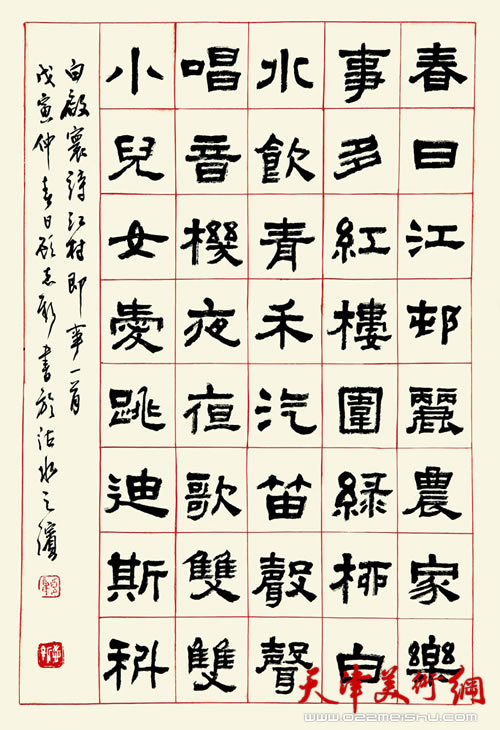 春日江邨麗農家樂
事多紅樓圍綠柳白
水飲青禾汽笛聲聲
唱音機夜夜歌雙雙
小兒女愛跳迪斯科
白啟寰詩江村即事一首
戊寅仲春日顧志新書於沽水之濱
天津美術網
www.022meishu.com